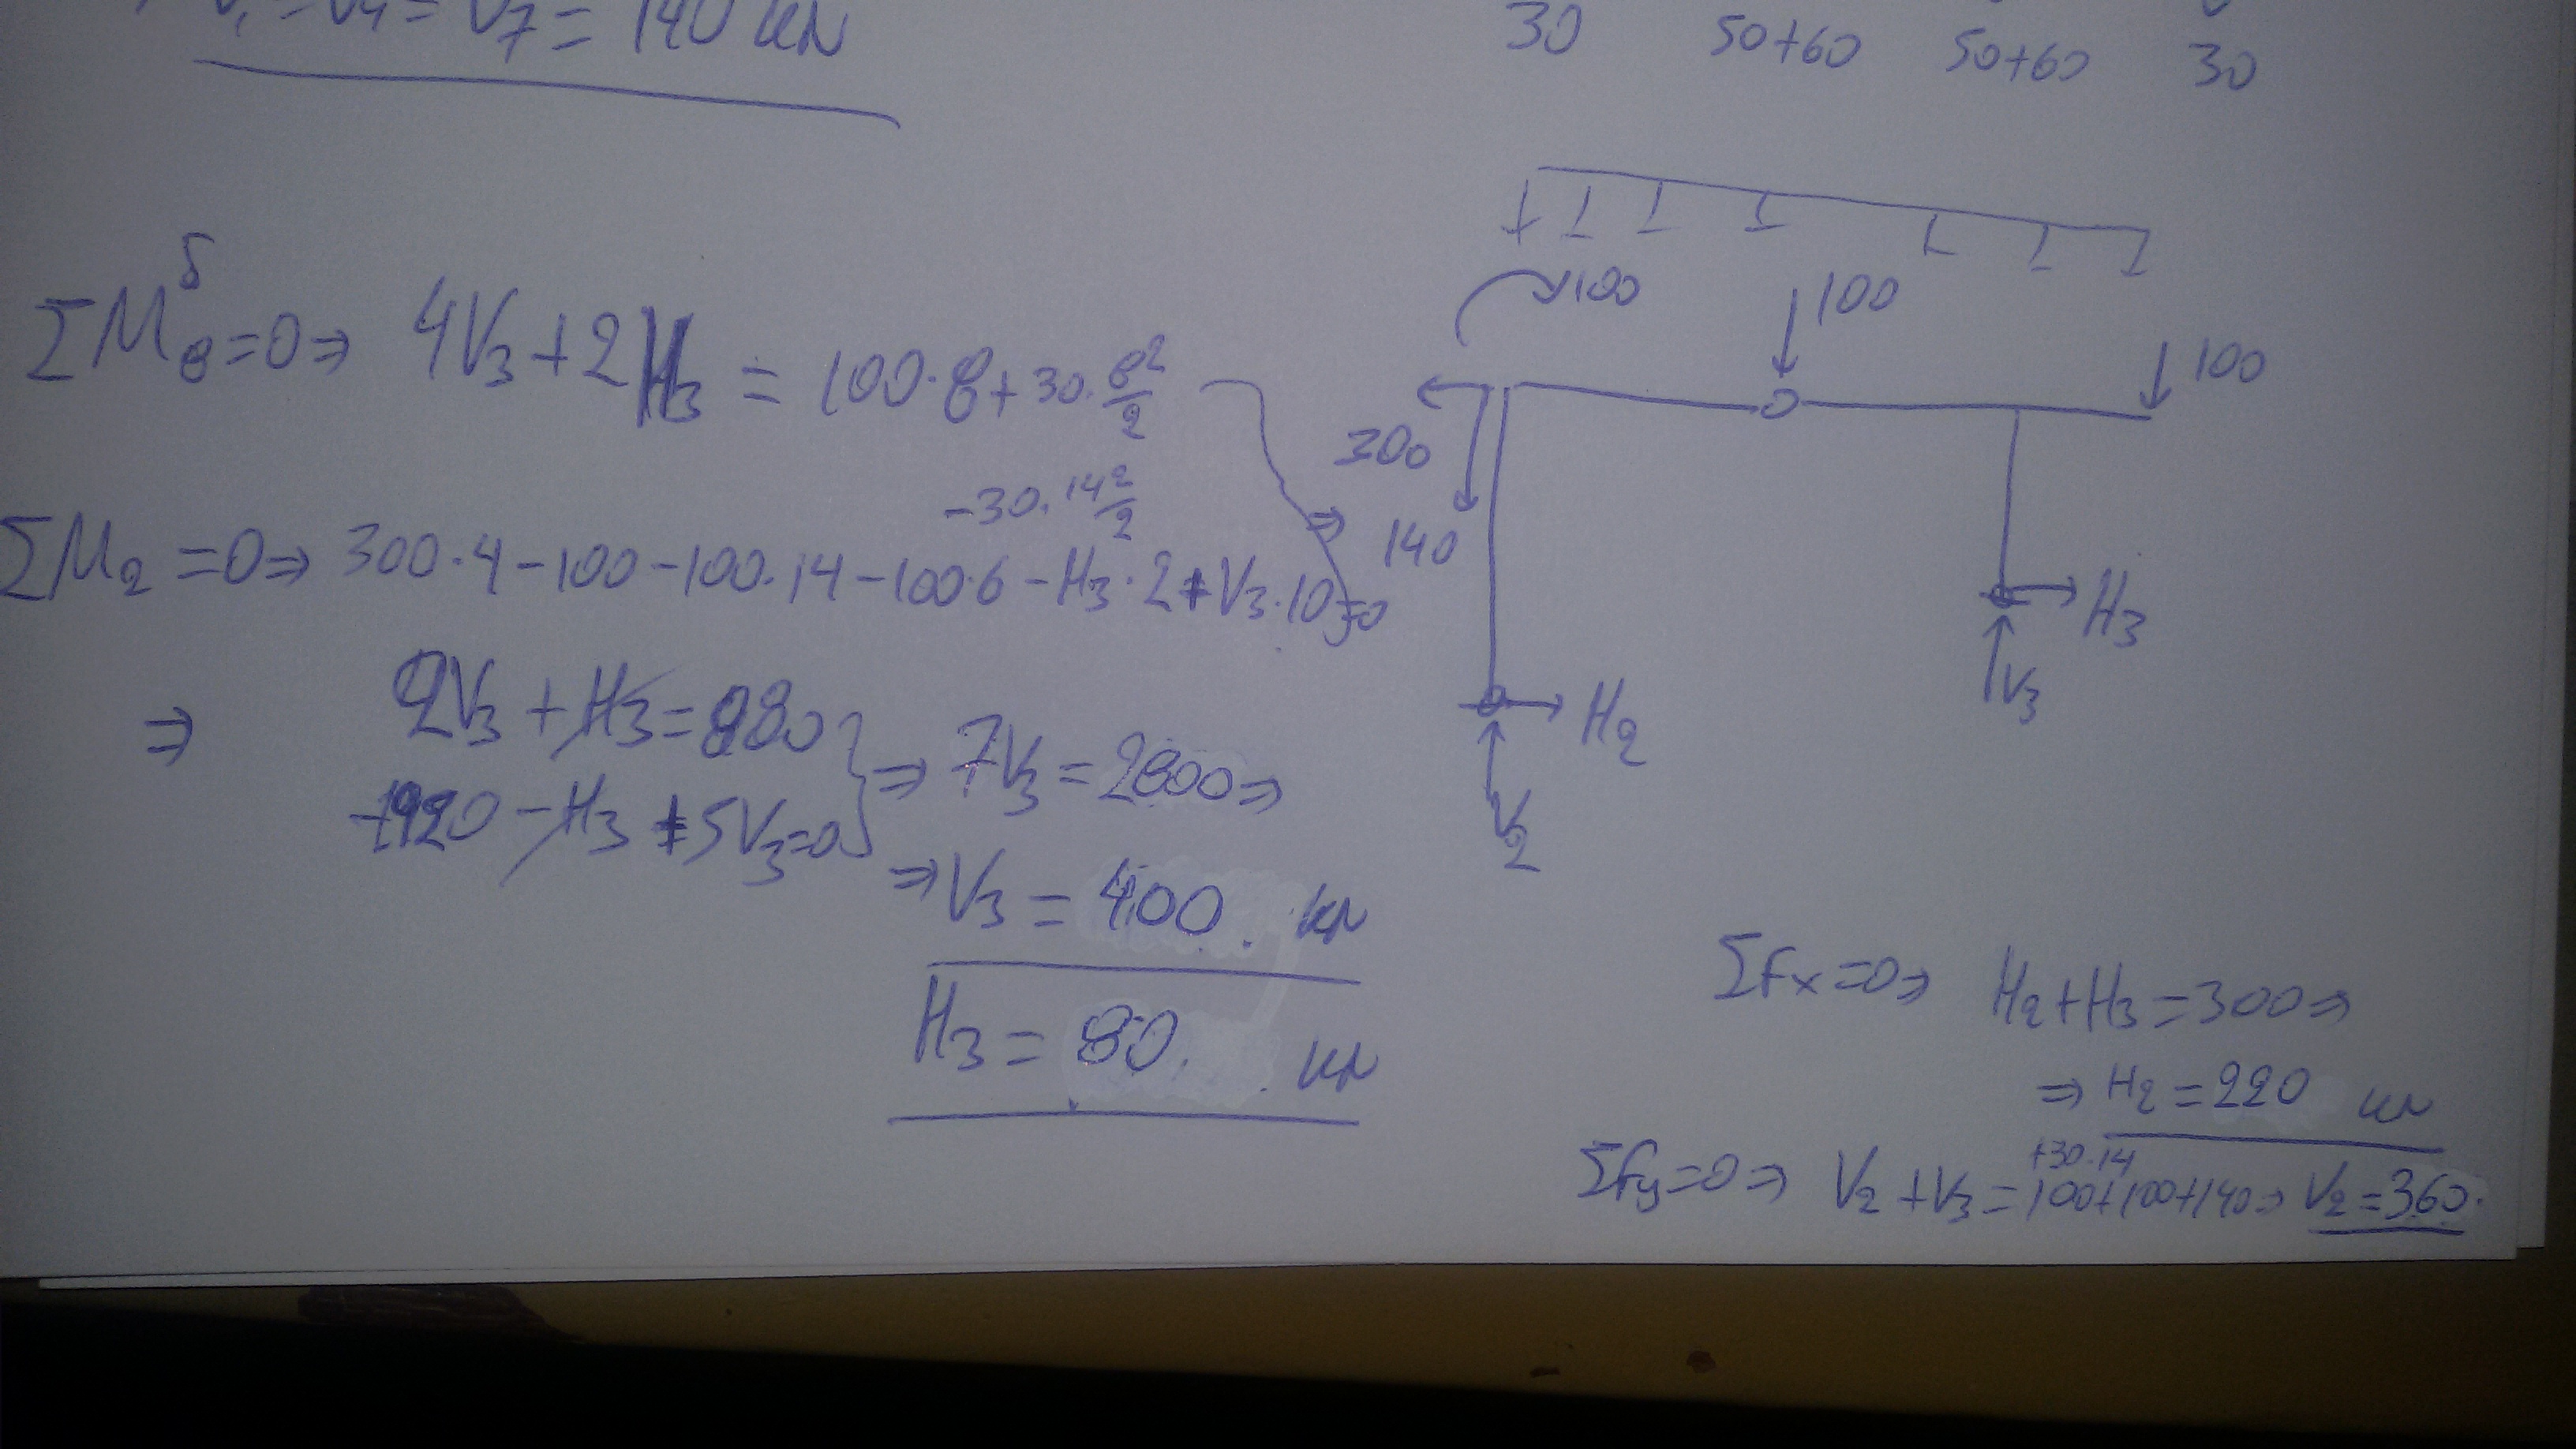 V₁ = V₄ = V₇ = 140 kN
30 50+60 50+60 30
ΣM_θ^δ = 0 ⇒ 4V₃ + 2H₃ = 100·8 + 30·8²/2
ΣM₂ = 0 ⇒ 300·4 - 100 - 100·14 - 100·6 - H₃·2 + V₃·10 = 0
-30·14²/2
⇒ 2V₃ + H₃ = 880
-1920 - H₃ + 5V₃ = 0
} ⇒ 7V₃ = 2800 ⇒
⇒ V₃ = 400 kN
H₃ = 80 kN
100
100
100
300
140
H₃
V₃
H₂
V₂
Σfx = 0 ⇒ H₂ + H₃ = 300 ⇒
⇒ H₂ = 220 kN
+30·14
Σfy = 0 ⇒ V₂ + V₃ = 100 + 100 + 140 ⇒ V₂ = 360